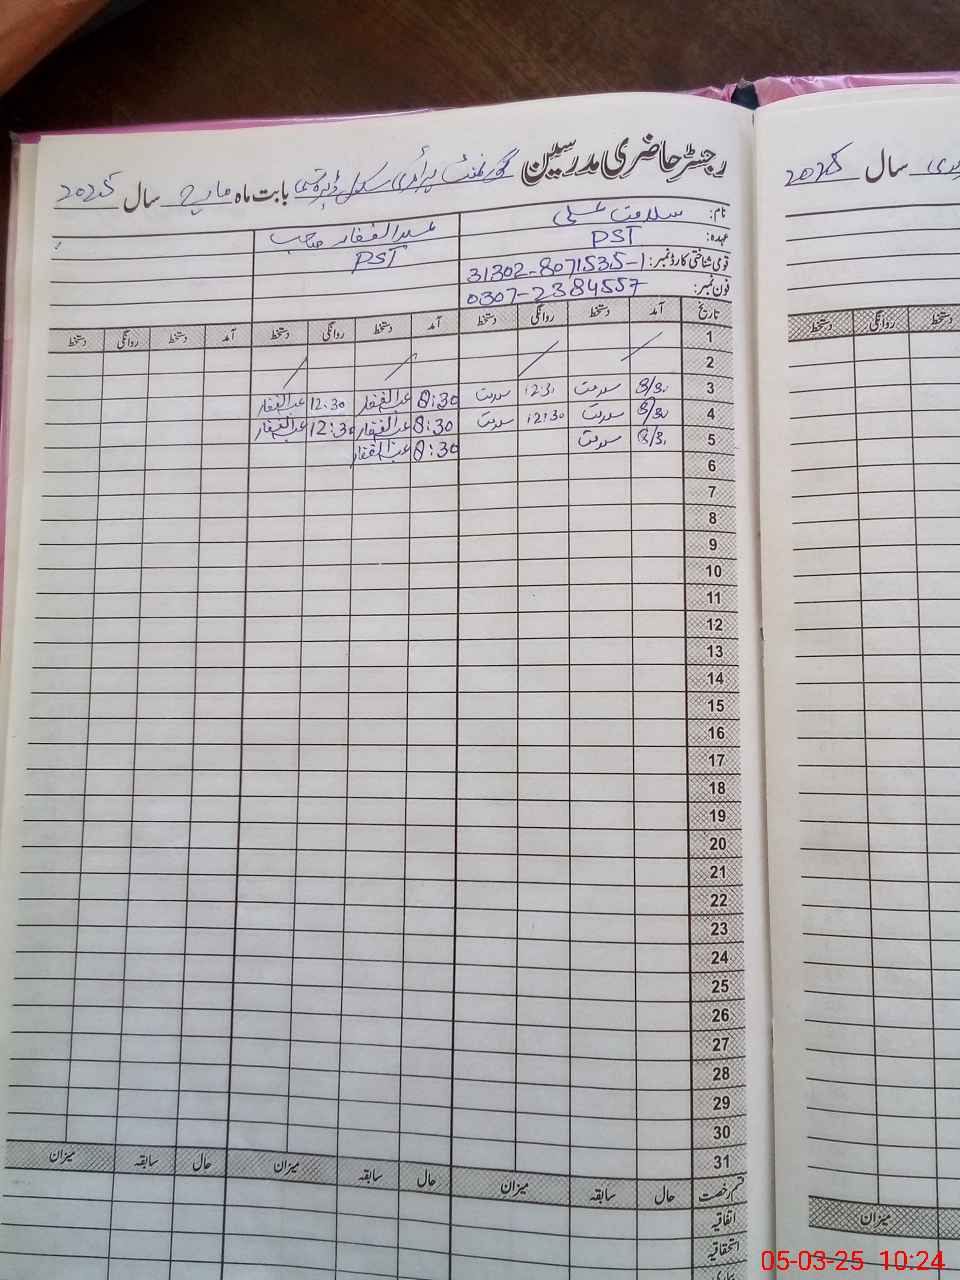 رجسٹر حاضری مدرسین گورنمنٹ پرائمری سکول بابت ماہ مارچ سال 2025
سال 2025
نام: سلامت علی عبدالغفار صاحب
عہدہ: PST PST
قومی شناختی کارڈ نمبر: 31302-8071535-1
فون نمبر: 0307-2384557
تاریخ آمد دستخط روانگی دستخط آمد دستخط روانگی دستخط آمد دستخط روانگی دستخط
دستخط روانگی دستخط
1
2
3 8/30 سلامت 12:31 سلامت 8:30 عبدالغفار 12:30 عبدالغفار
4 8/30 سلامت 12:30 سلامت 8:30 عبدالغفار 12:30 عبدالغفار
5 8/30 سلامت 8:30 عبدالغفار
6
7
8
9
10
11
12
13
14
15
16
17
18
19
20
21
22
23
24
25
26
27
28
29
30
31
قسم رخصت حال سابقہ میزان حال سابقہ میزان حال سابقہ میزان
میزان
اتفاقیہ
استحقاقیہ
05-03-25 10:24